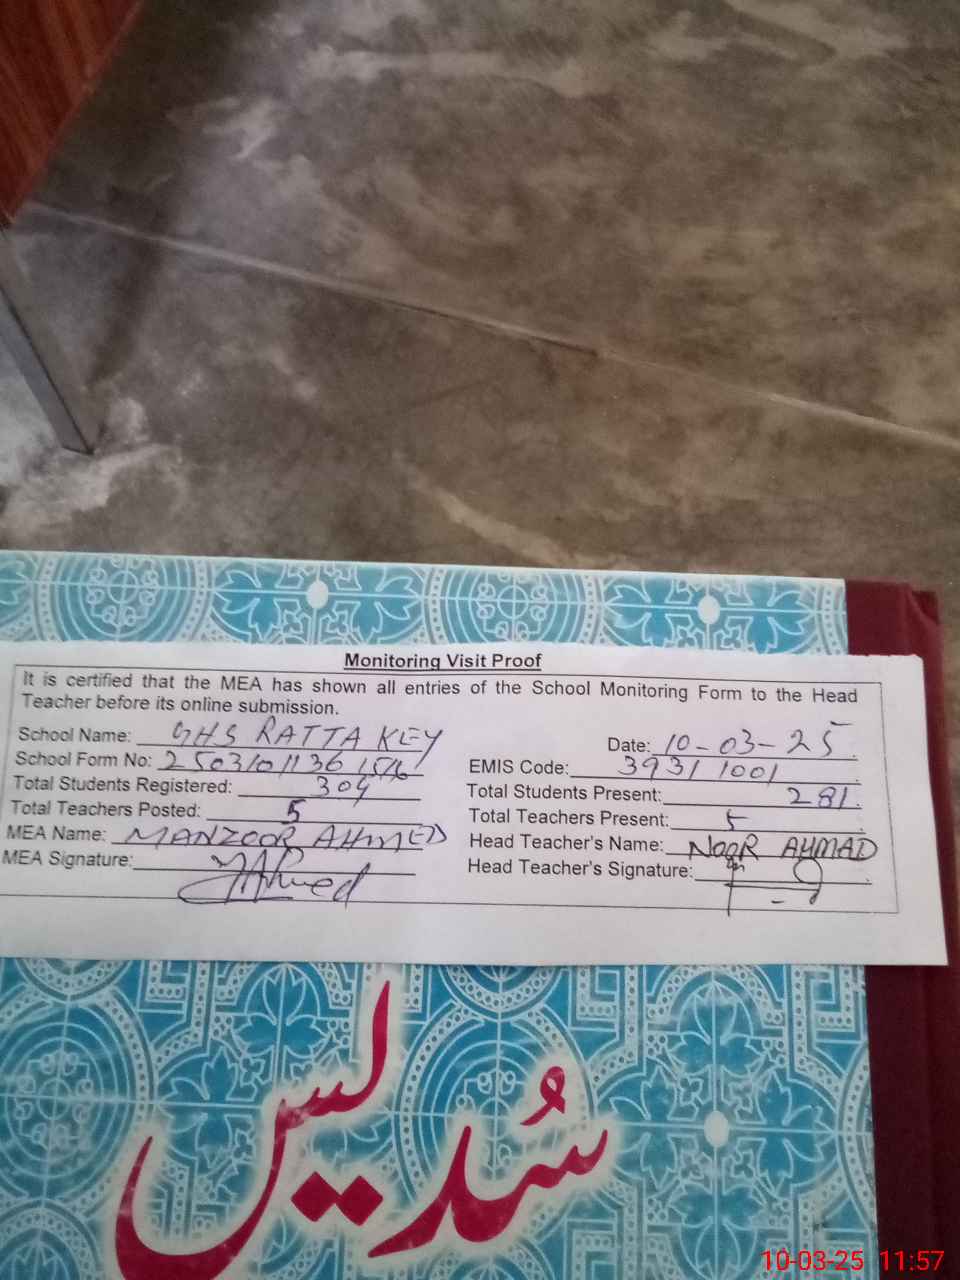 Monitoring Visit Proof
It is certified that the MEA has shown all entries of the School Monitoring Form to the Head
Teacher before its online submission.
School Name: GHS RATTA KEY
Date: 10-03-25
School Form No:
EMIS Code: 39311001
Total Students Registered: 304
Total Students Present: 281
Total Teachers Posted: 5
Total Teachers Present: 5
MEA Name: MANZOOR AHMED
Head Teacher's Name: NOOR AHMAD
MEA Signature:
Head Teacher's Signature:
سُدیس
10-03-25 11:57